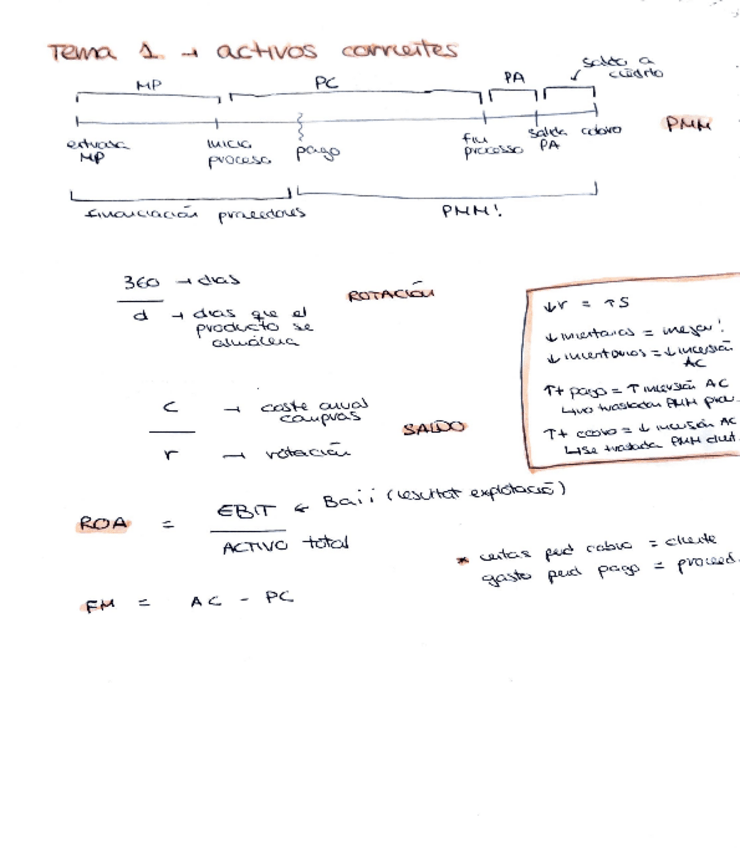 Tema 1 → activos corrientes
MP PC PA saldo a
cliente
entrada MP
inicio proceso
pago
fin proceso
salida PA
cobro
PMM
financiación proveedores
PMM!
360 → dias
d → dias que el
producto se
almacena
ROTACIÓN
↓r = ↑S
↓ inventarios = mejor!
↓ inventarios = ↓ inversión
AC
↑t pago = ↑ inversión AC
↳ no trasladar PMM prov.
↑t cobro = ↓ inversión AC
↳ se traslada PMM client.
C → coste anual
compras
r → rotación
SALDO
ROA = EBIT ← Baii (resultat explotació)
ACTIVO total
* ventas pend cobro = cliente
gasto pend pago = proveed.
FM = AC - PC